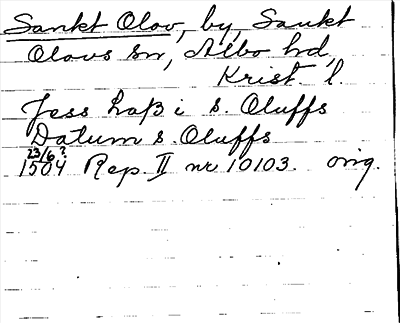 Sankt Olov, by, Sankt
Olovs sn, Albo hd,
Krist. l.
Jess Laß i s. Oluffs
Datum s. Oluffs
23/6 ?
1504 Rep. II nr 10103. orig.